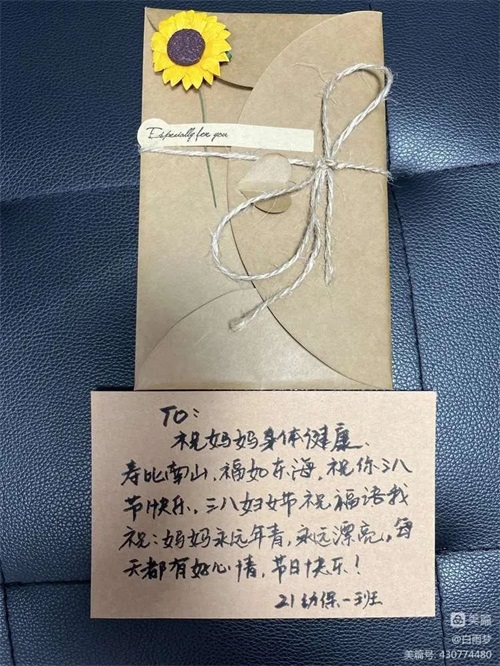 Especially for you
TO：
祝妈妈身体健康、
寿比南山，福如东海，祝你三八
节快乐，三八妇女节祝福语我
祝：妈妈永远年青，永远漂亮，每
天都有好心情，节日快乐！
21幼保一班
美篇
@白雨梦
美篇号：430774480